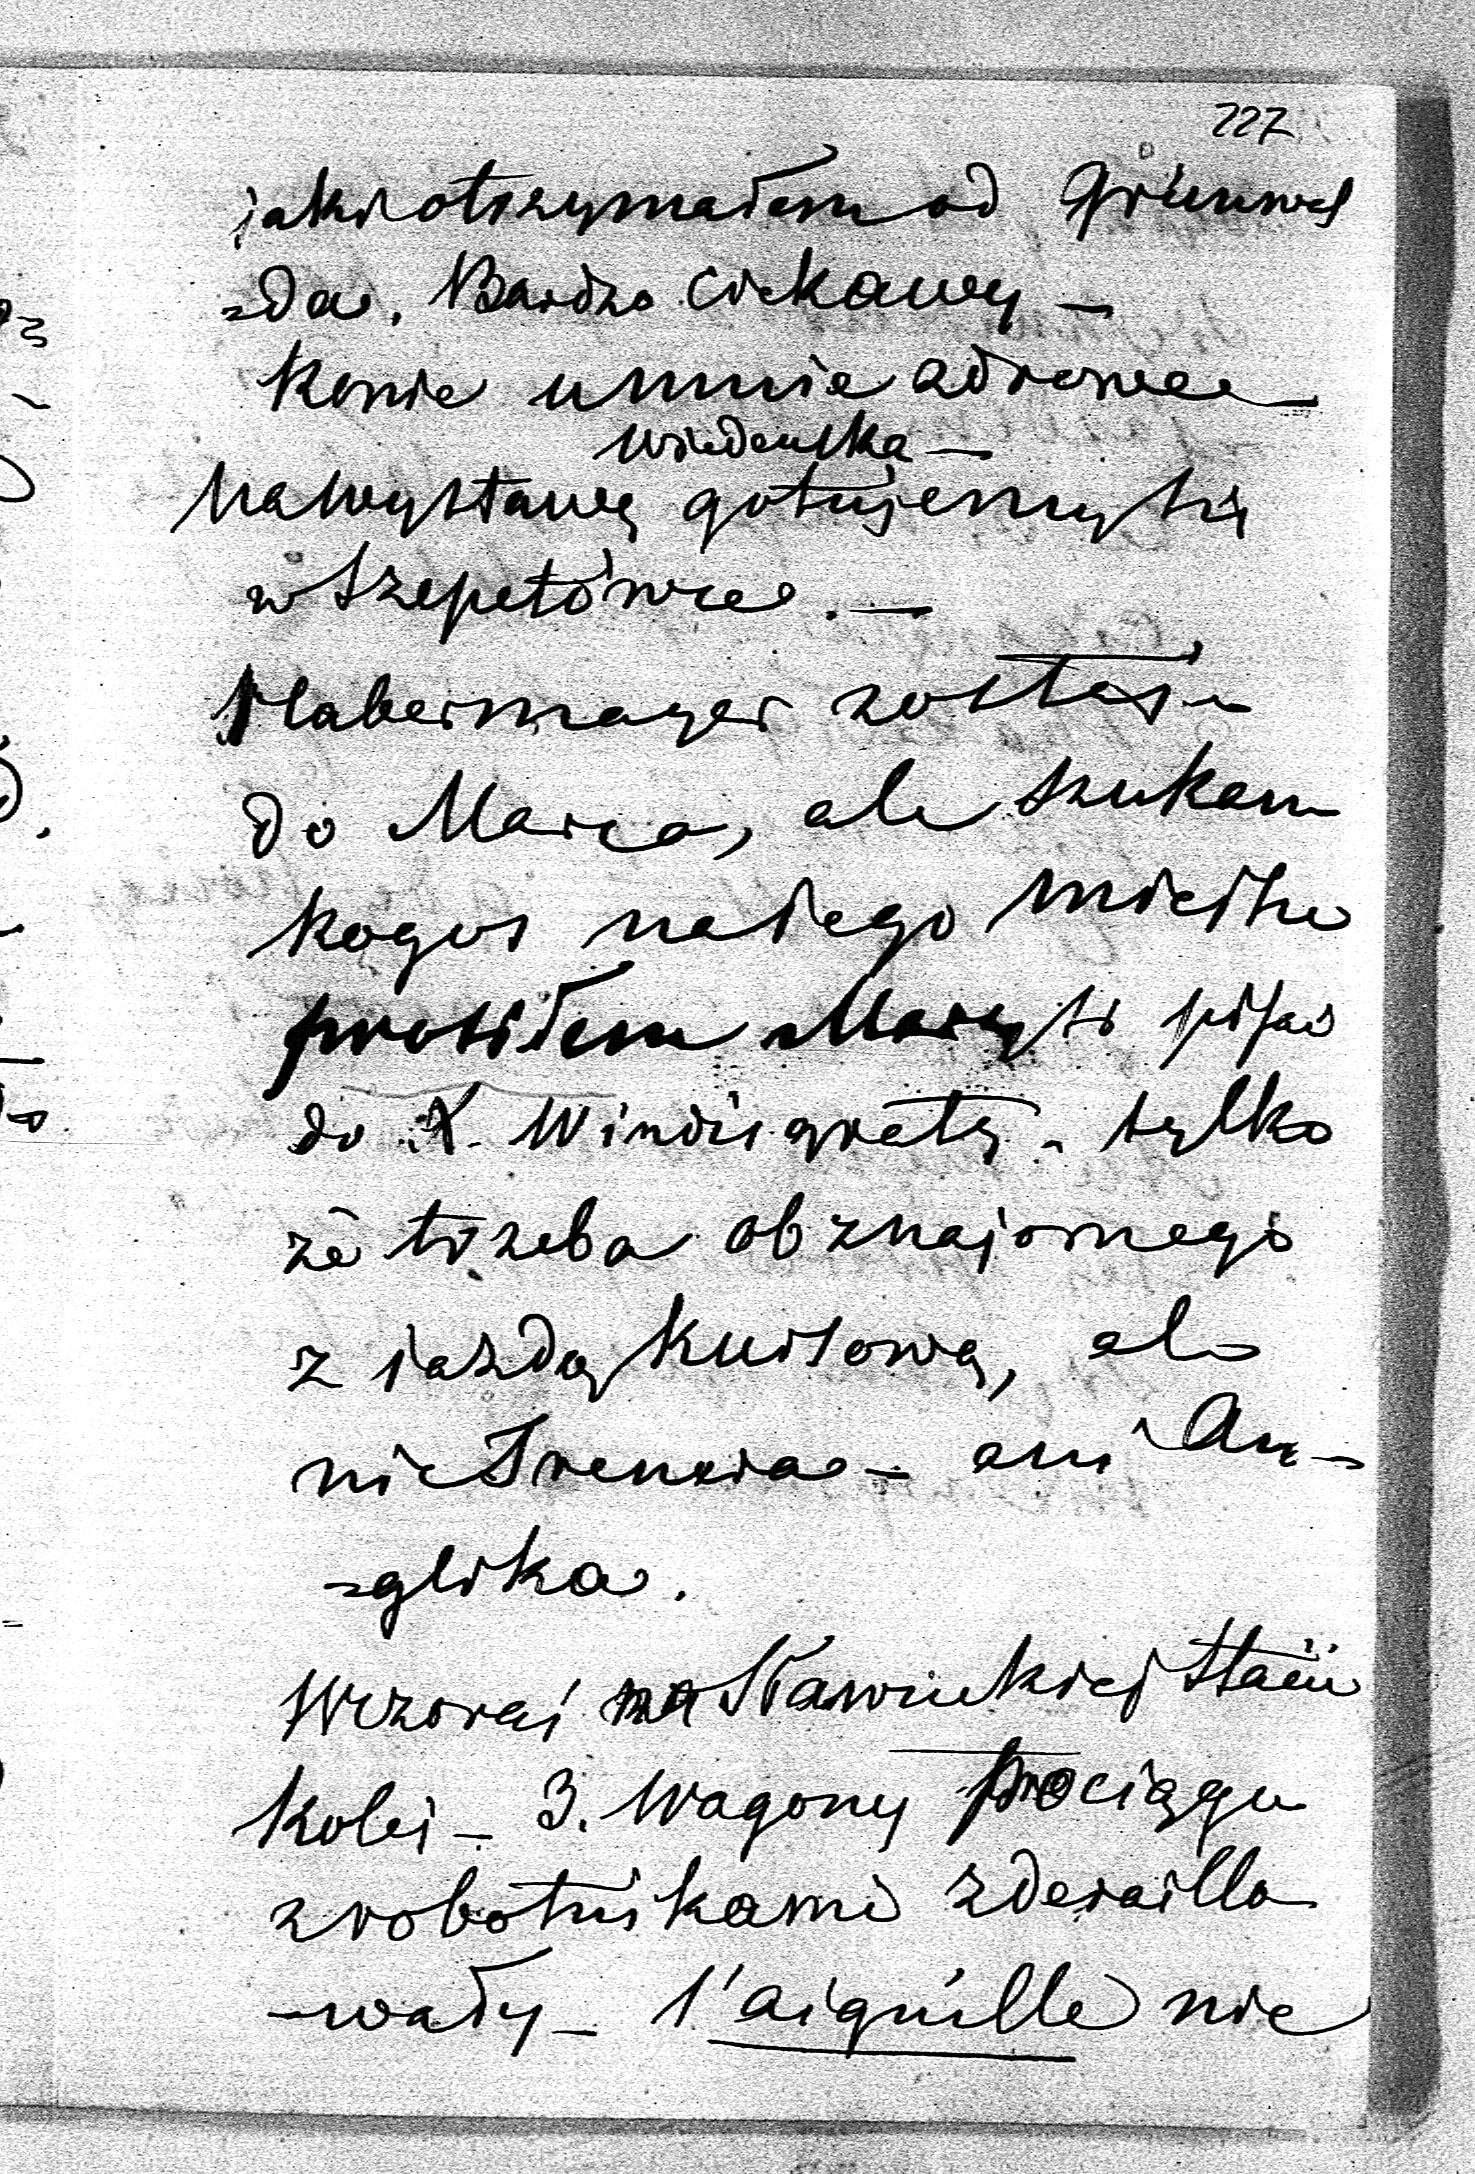 227
jaki otrzymałem od Grünwal
=da. Bardzo ciekawy –
Konie u mnie zdrowe –
Wiedeńska –
Na Wystawę gotujemy się
w Szepetówce. –
Habermayer zostaje
do Marca, ale szukam
kogoś na jego miejsce
prosiłem Marysi pisać
do X. Windisgrety. tylko
że trzeba obznajomego
z jazdą kursową, ale
nie Trenera – ani An–
=glika.
Wczoraj na Sławuckiej Stacii
Kolei – 3. Wagony pociągu
z robotnikami zderaillo
–wały – l'aiguille nie